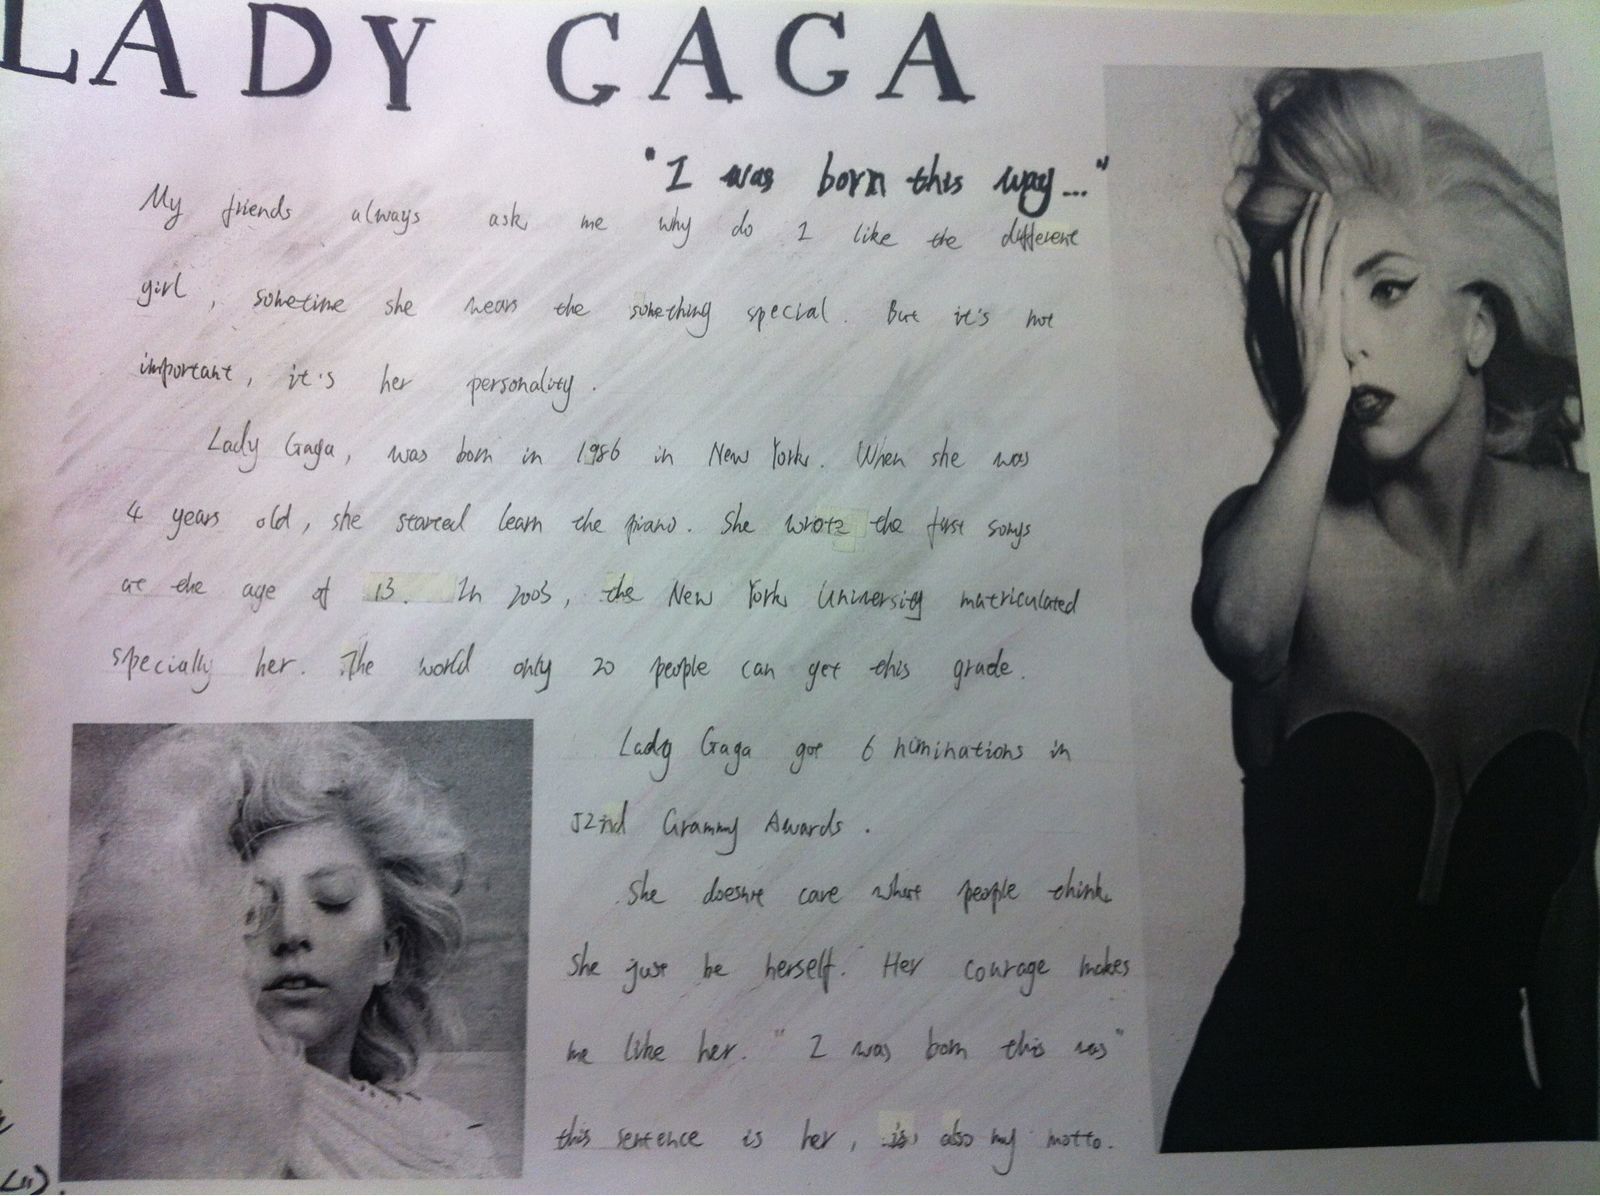 LADY GAGA
"I was born this way..."
My friends always ask me why do I like the different
girl, sometime she wears the something special. But it's not
important, it's her personality.
Lady Gaga, was born in 1986 in New York. When she was
4 years old, she started learn the piano. She wrote the first songs
at the age of 13. In 2003, the New York University matriculated
specially her. The world only 20 people can get this grade.
Lady Gaga got 6 niminations in
52nd Grammy Awards.
She doesnt care what people think
She just be herself. Her courage makes
me like her. "I was born this was"
this sentence is her, is also my motto.
(11).